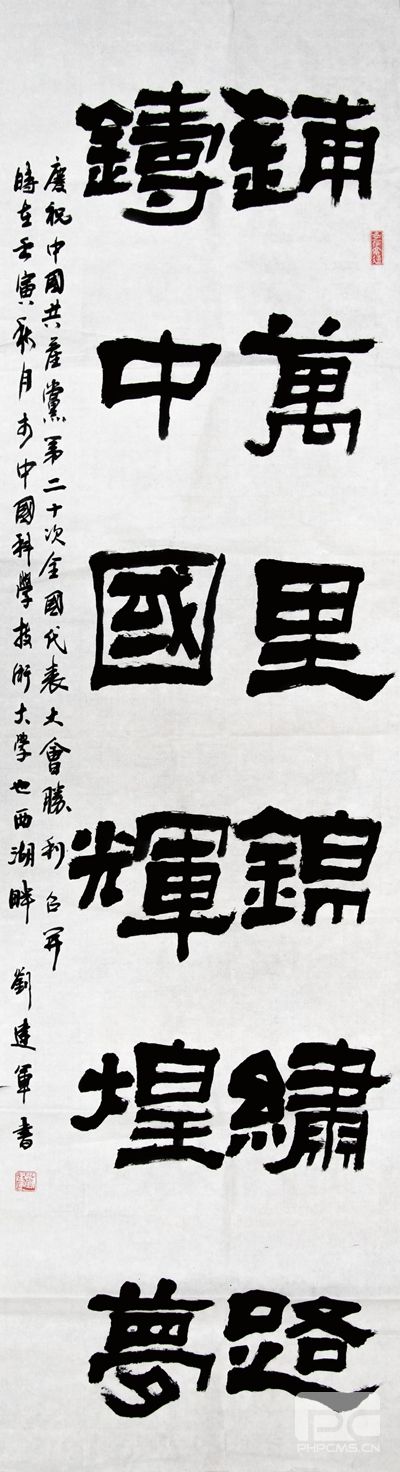 鋪萬里錦繡路
鑄中國輝煌夢
慶祝中國共產黨第二十次全國代表大會勝利召開
時在壬寅秋月於中國科學技術大學也西湖畔 劉建軍書
PHPCMS.CN